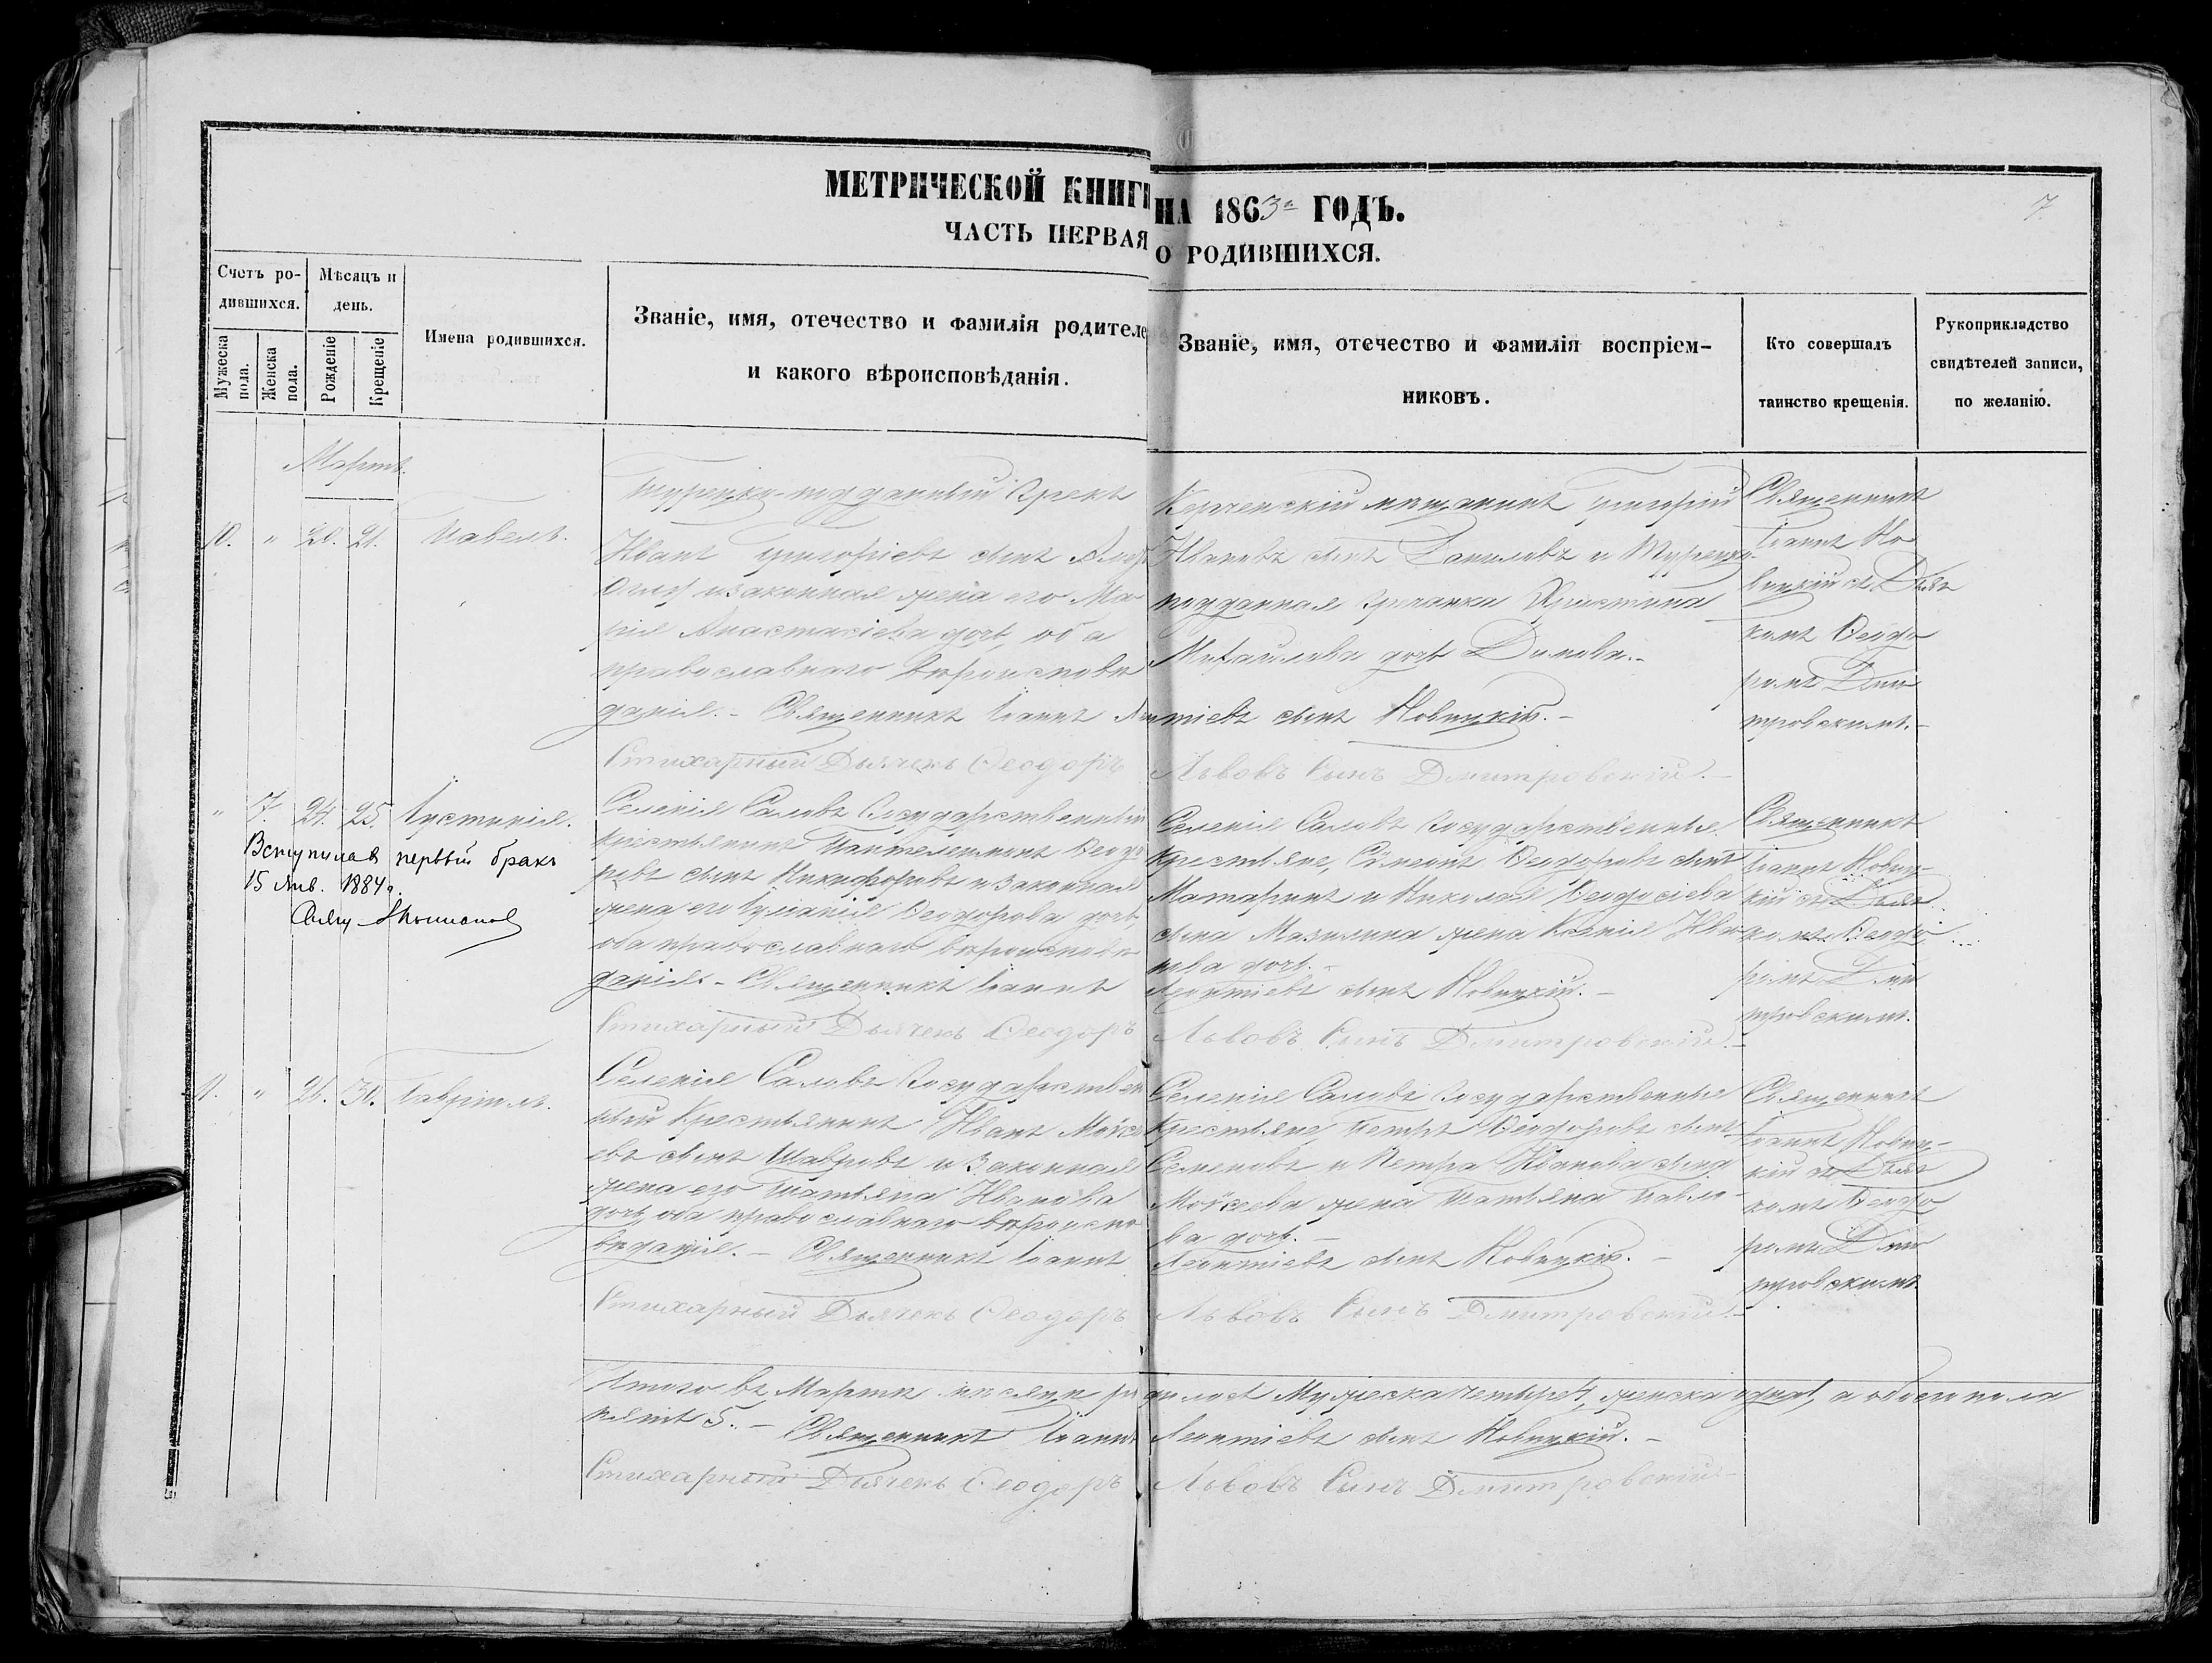 МЕТРИЧЕСКОЙ КНИГИ НА 1863й ГОДЪ.
7.
ЧАСТЬ ПЕРВАЯ О РОДИВШИХСЯ.
Счетъ ро-
дившихся.
Мужеска пола.
Женска пола.
Мѣсяцъ и
день.
Рожденіе
Крещеніе
Имена родившихся.
Званіе, имя, отечество и фамилія родителе
и какого вѣроисповѣданія.
Званіе, имя, отечество и фамилія воспріем-
никовъ.
Кто совершалъ
таинство крещенія.
Рукоприкладство
свидѣтелей записи,
по желанію.
Мартъ.
10. " 20. 21. Павелъ.
Турецко-подданный Грекъ
Иванъ Григорьевъ сынъ
и законная жена его Ма-
рія Анастасіева дочь, оба
православнаго вѣроисповѣ
данія. - Священникъ Іоаннъ Леонтіевъ сынъ Новицкій. -
Стихарный Дьячекъ Ѳеодоръ Львовъ Сынъ Дмитровскій. -
Керченскій мѣщанинъ Григорій
Ивановъ сынъ Даниловъ и Турецко-
подданная гречанка Христина
Михайлова дочь Димова. -
Священникъ
Іоаннъ Но-
вицкій съ Дьяч
комъ Ѳеодо-
ромъ Дми
тровскимъ. -
" 7. 24. 25. Іустинія.
Вступила в первый бракъ
15 Янв. 1884 г.
Селенія Саловъ Государственный
крестьянинъ Пантелеимонъ Ѳеодо
ровъ сынъ Никифоровъ и законная
жена его Іуліанія Ѳеодорова дочь,
оба православнаго вѣроисповѣ
данія. - Священникъ Іоаннъ Леонтіевъ сынъ Новицкій. -
Стихарный Дьячекъ Ѳеодоръ Львовъ Сынъ Дмитровскій. -
Селенія Саловъ Государственные
крестьяне, Симеонъ Ѳеодоровъ сынъ
и Николая Ѳеодосіева
сына жена Ксенія Ива
нова дочь. -
Священникъ
Іоаннъ Новиц-
кій съ Дьяч
комъ Ѳеодо
ромъ Дми
тровскимъ.
11. " 26. 30. Гавріилъ.
Селенія Саловъ Государствен
ный Крестьянинъ Иванъ Моѵсе
евъ сынъ Шавровъ и законная
жена его Татьяна Иванова
дочь, оба православнаго вѣроиспо
вѣданія. - Священникъ Іоаннъ Леонтіевъ сынъ Новицкій. -
Стихарный Дьячекъ Ѳеодоръ Львовъ Сынъ Дмитровскій. -
Селенія Саловъ Государственные
Крестьяне, Петръ Ѳеодоровъ сынъ
Семеновъ и Петра Иванова сына
Моѵсеева жена Татьяна Павло-
ва дочь. -
Священникъ
Іоаннъ Новиц-
кій съ Дьяч
комъ Ѳеодо
ромъ Дми
тровскимъ
Итого въ Мартѣ мѣсяцѣ родилось Мужеска четыре 4, женска одна 1, а обоего пола
пять 5. - Священникъ Іоаннъ Леонтіевъ сынъ Новицкій. -
Стихарный Дьячекъ Ѳеодоръ Львовъ Сынъ Дмитровскій -